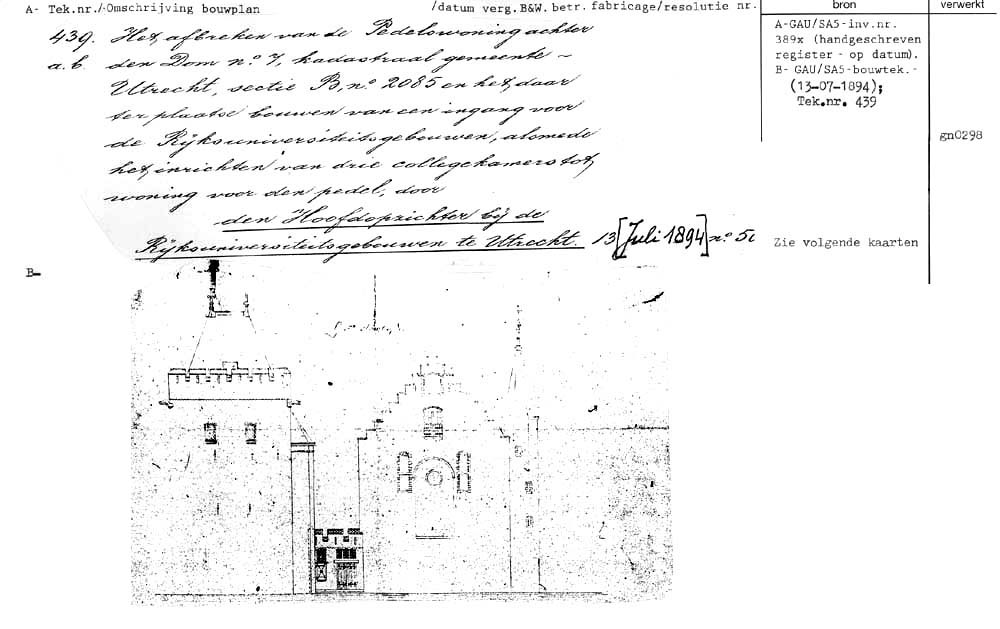 A- Tek.nr./-Omschrijving bouwplan /datum verg.B&W. betr. fabricage/resolutie nr. bron verwerkt
439. Het afbreken van de Pedelswoning achter
a.b. den Dom no. 7, kadastraal gemeente ~
Utrecht, sectie B, no. 2085 en het daar
ter plaatse bouwen van een ingang voor
de Rijksuniversiteitsgebouwen, alsmede
het inrichten van drie collegekamers tot
woning voor den pedel, door
den Hoofdopzichter bij de
Rijksuniversiteitsgebouwen te Utrecht. 13 [Juli 1894] no.
A-GAU/SA5-inv.nr.
389x (handgeschreven
register - op datum).
B- GAU/SA5-bouwtek.-
(13-07-1894);
Tek.nr. 439
gn0298
Zie volgende kaarten
B-